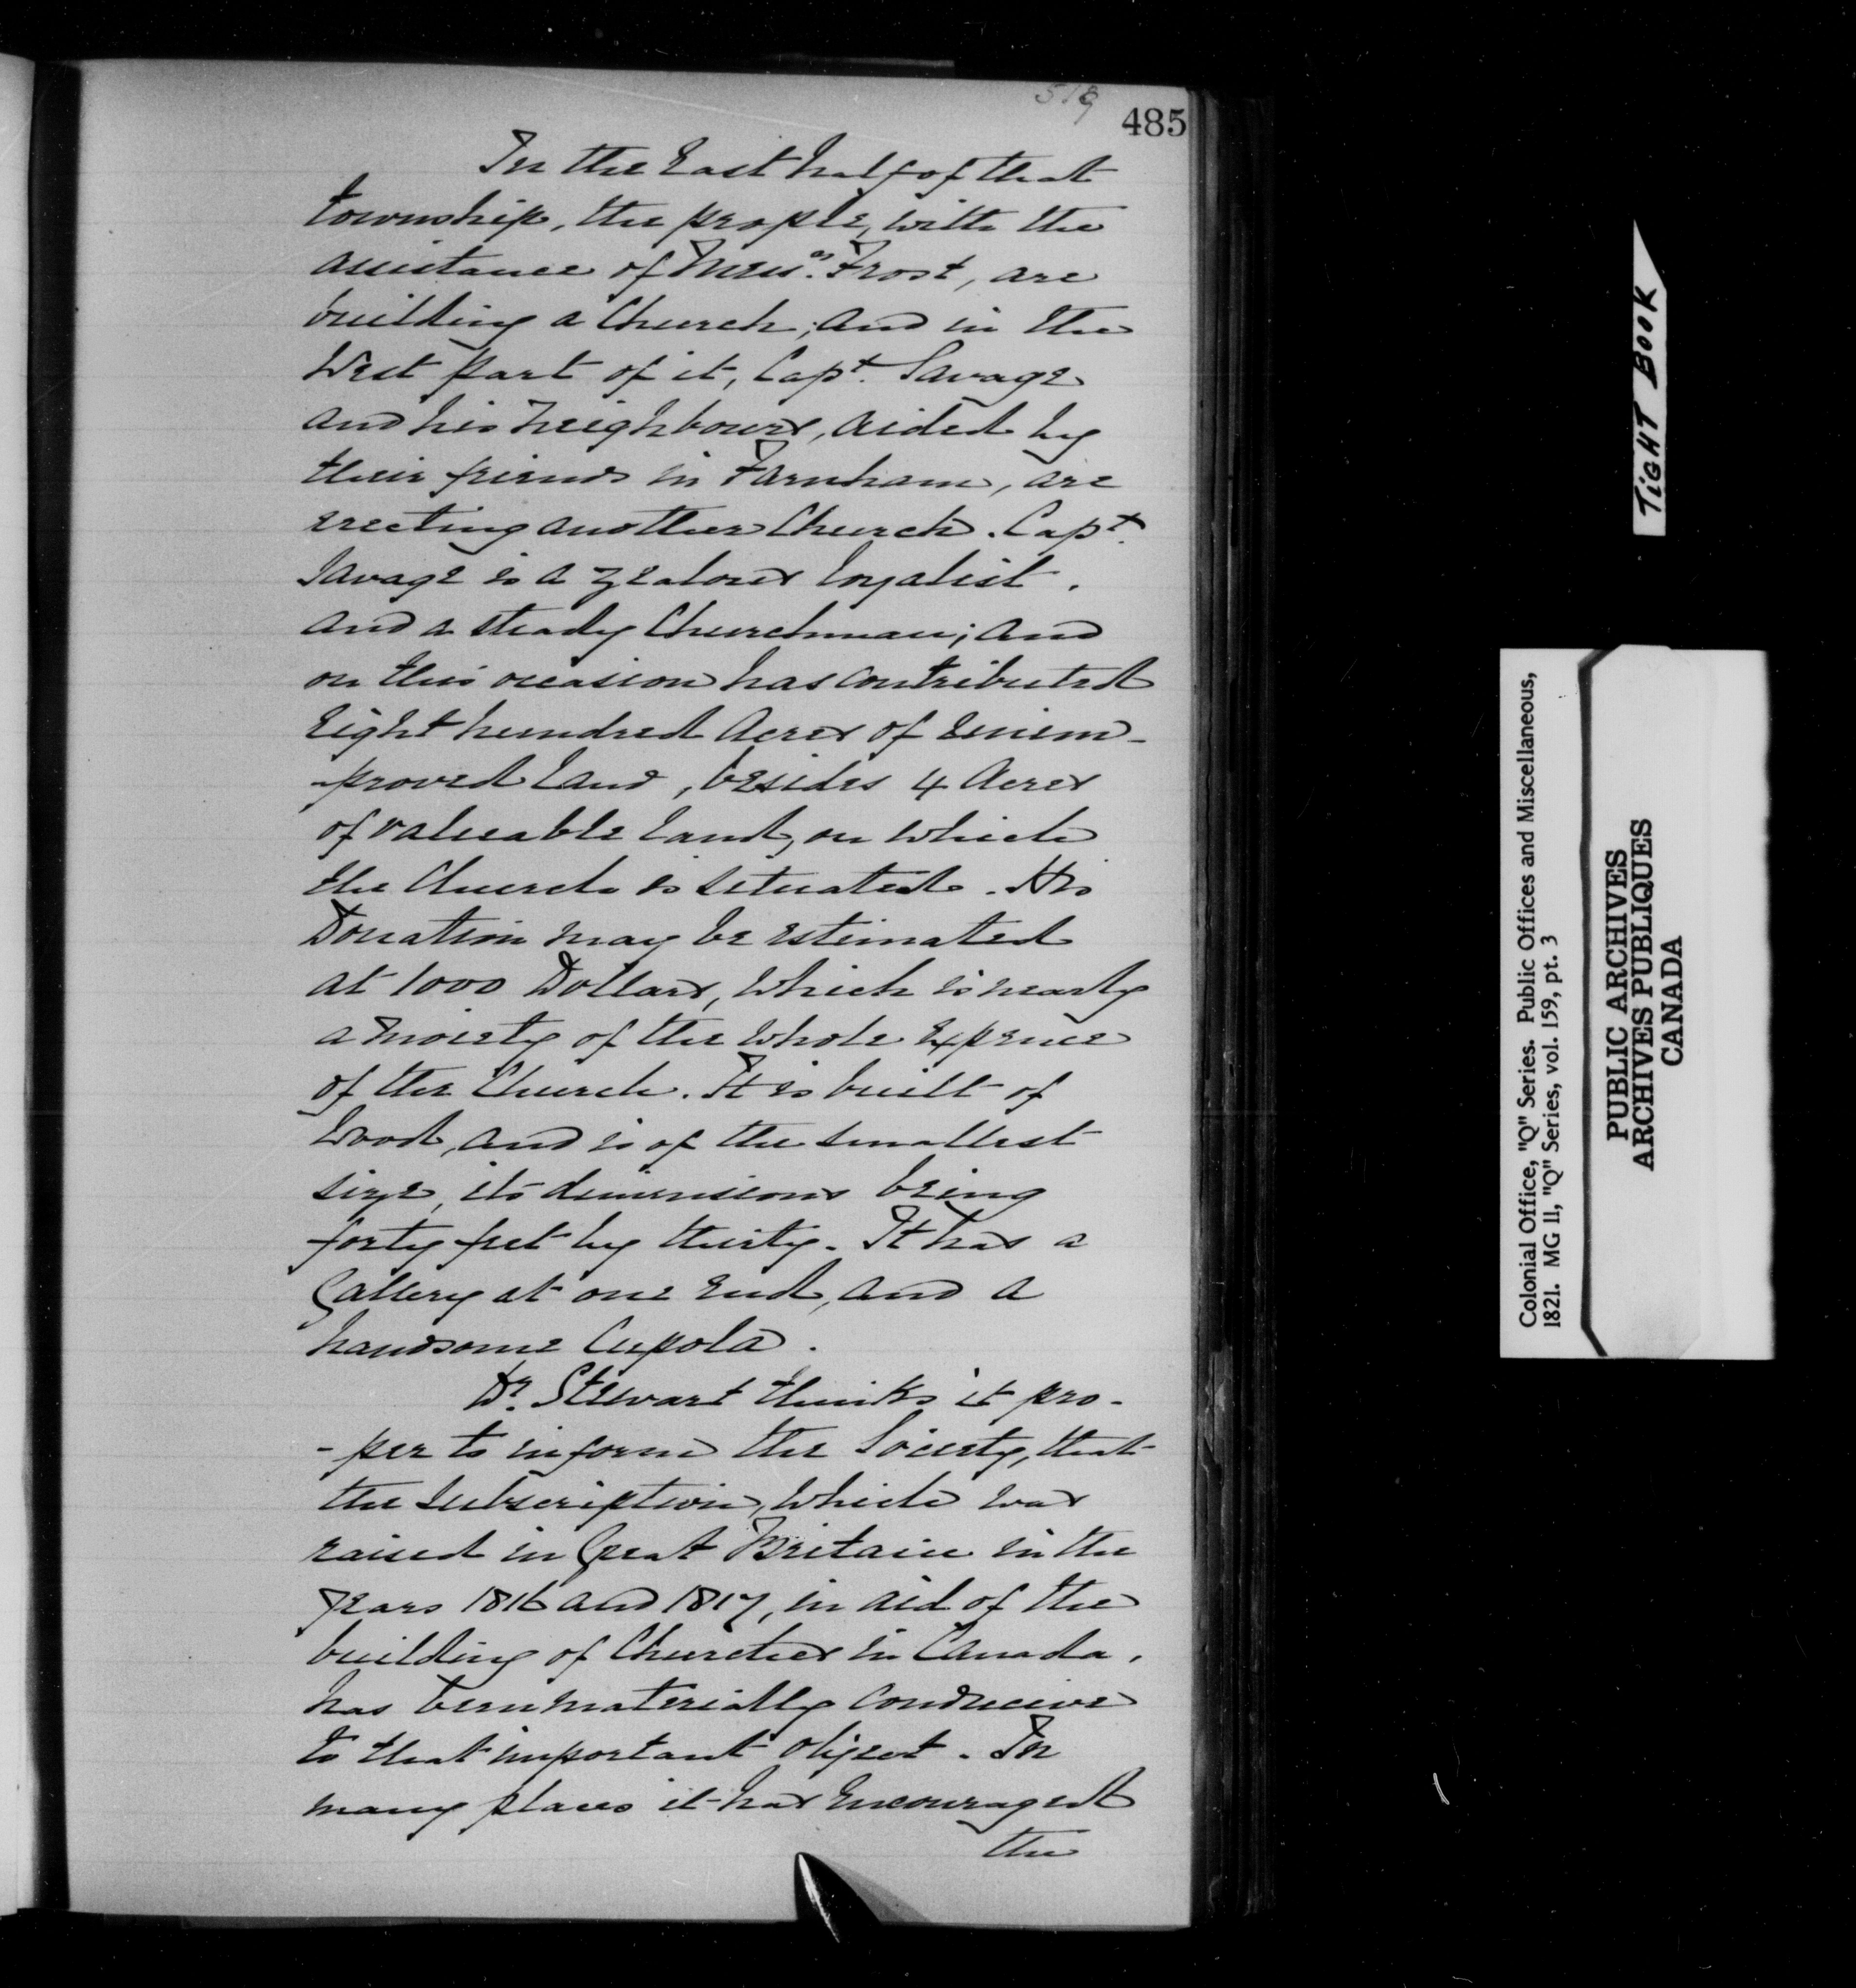 485
In the East half of that
township, the people, with the
assistance of Mess.rs Frost, are
building a Church; and in the
West part of it, Capt. Savage
and his neighbours, aided by
their friends in Farnham, are
erecting another Church. Capt.
Savage is a zealous loyalist.
and a steady Churchman; and
on this occasion has contributed
Eight hundred Acres of unim-
-proved land, besides 4 Acres
of valuable land, on which
the Church is situated. His
Donation may be estimated
at 1000 Dollars, which is nearly
a moiety of the whole expence
of the Church. It is built of
Wood, and is of the smallest
size, its dimensions being
forty feet by thirty. It has a
Gallery at one end, and a
handsome Cupola.
Dr. Stewart thinks it pro-
-per to inform the Society, that
the subscription, which was
raised in Great Britain in the
Years 1816 and 1817, in aid of the
building of Churches in Canada,
has been materially conducive
to that important object. In
many places it has encouraged
the
TIGHT BOOK
Colonial Office, "Q" Series. Public Offices and Miscellaneous,
1821. MG 11, "Q" Series, vol. 159, pt. 3
PUBLIC ARCHIVES
ARCHIVES PUBLIQUES
CANADA